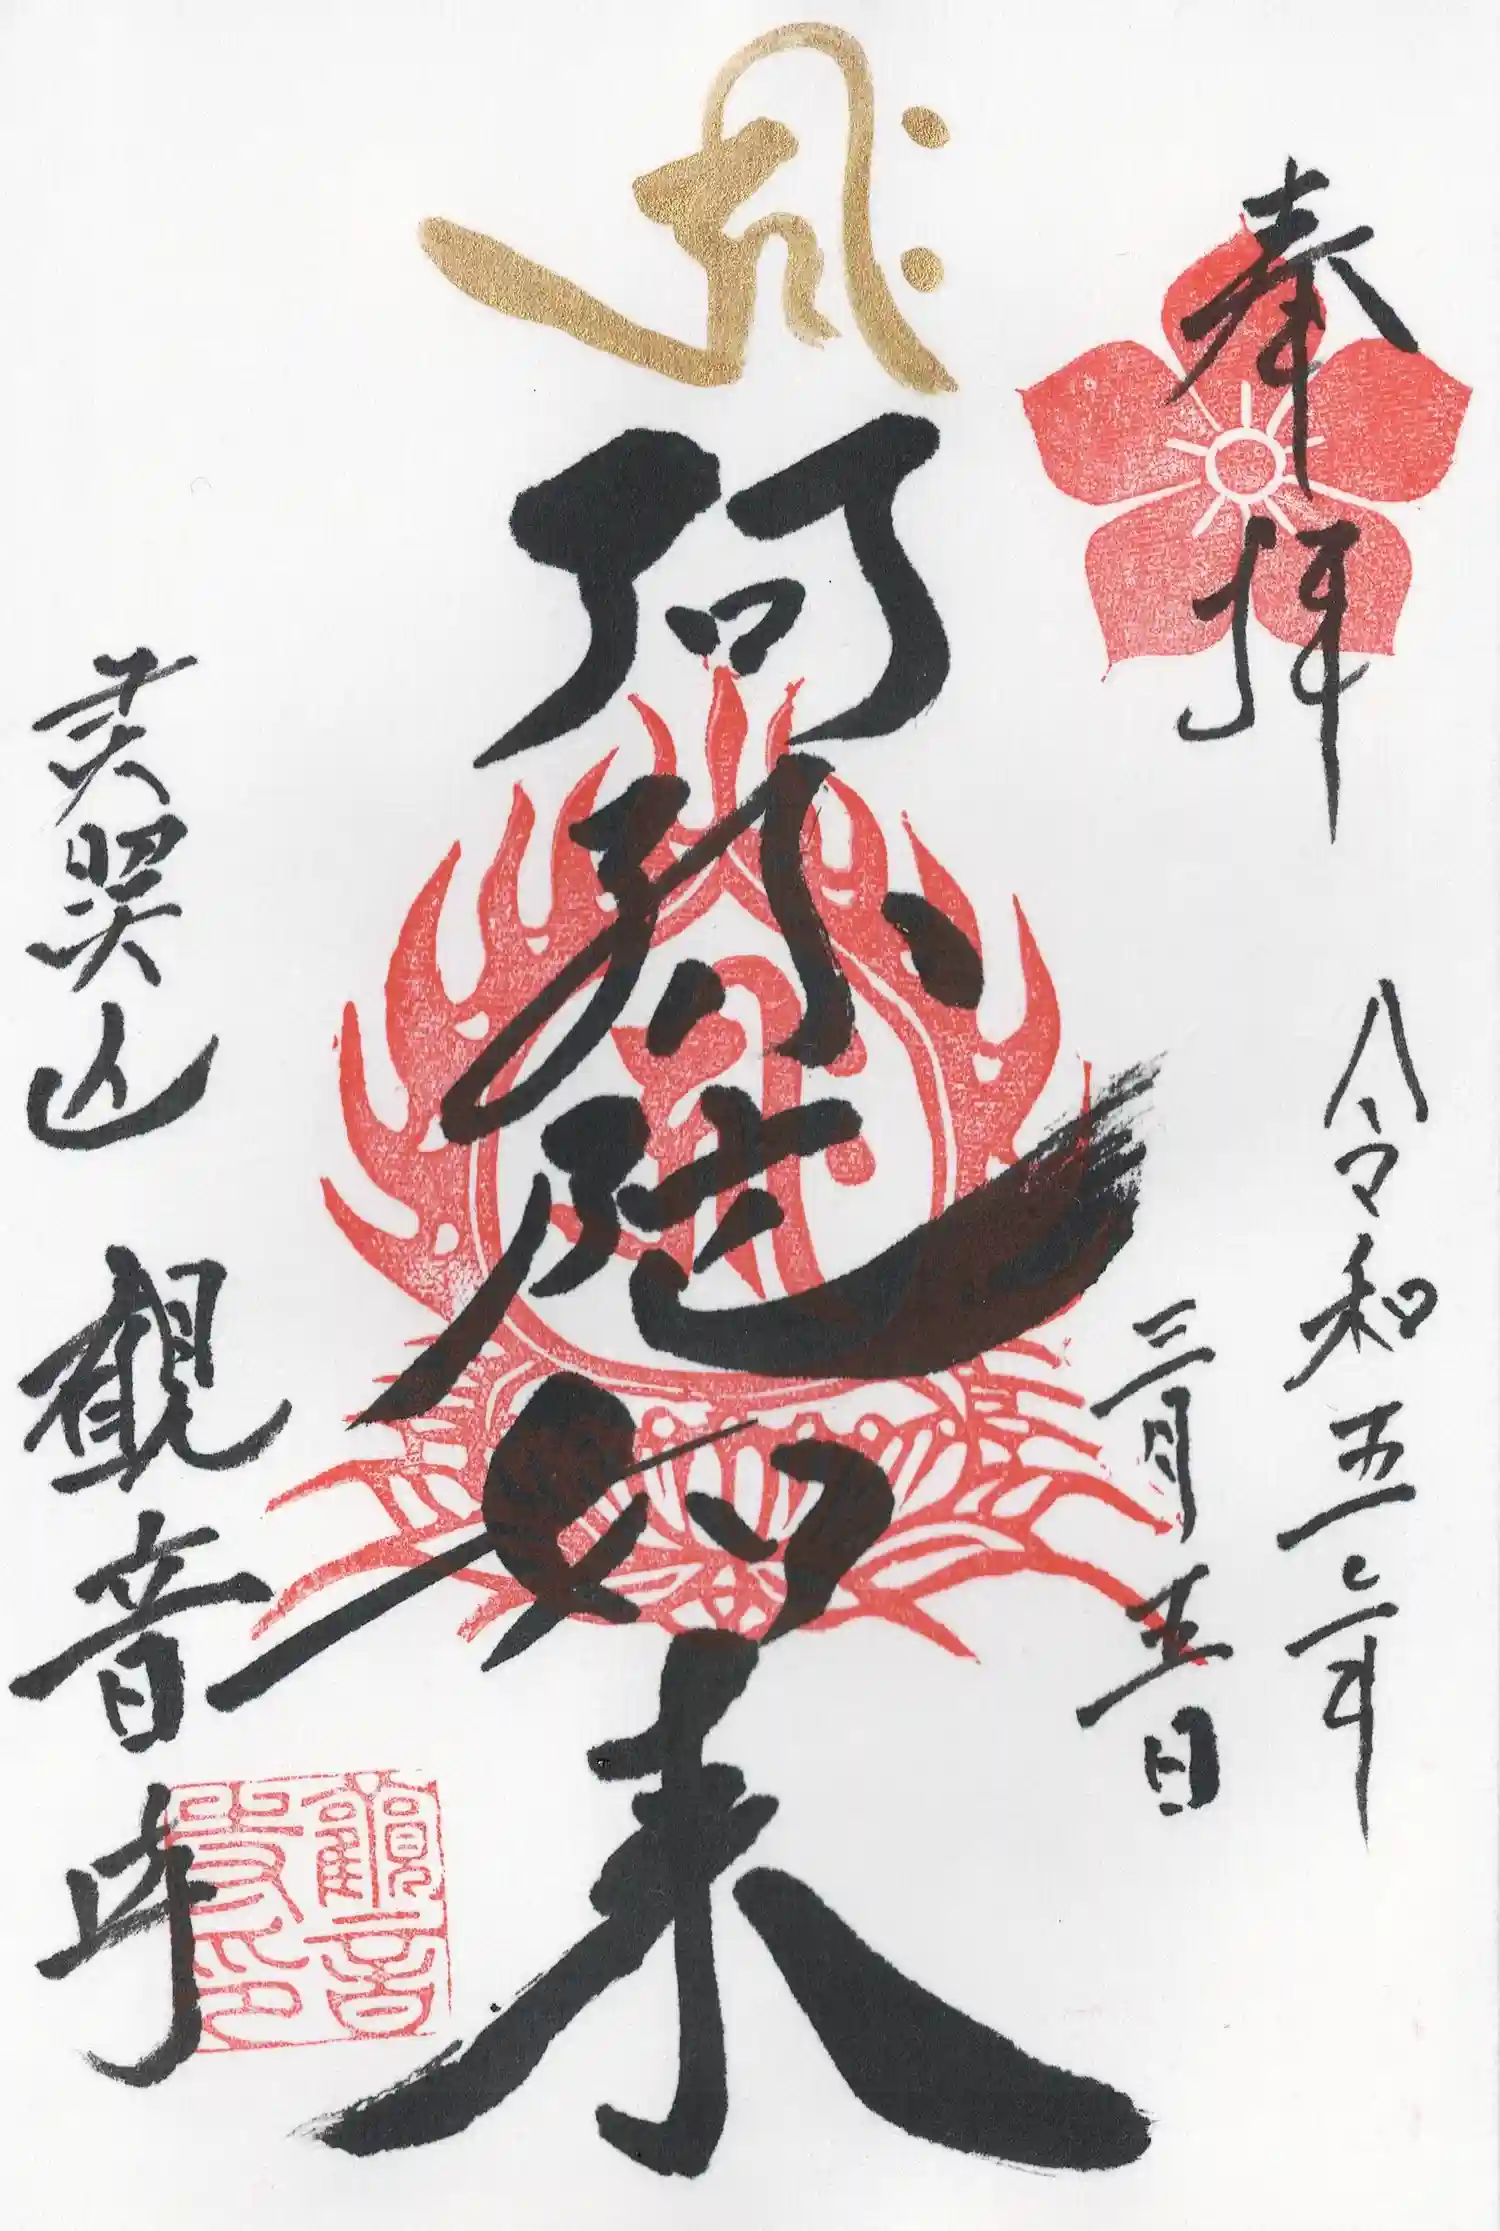 ह्रीः
奉拝
令和五年
三月五日
阿弥陀如来
山 観音寺
觀音寺印